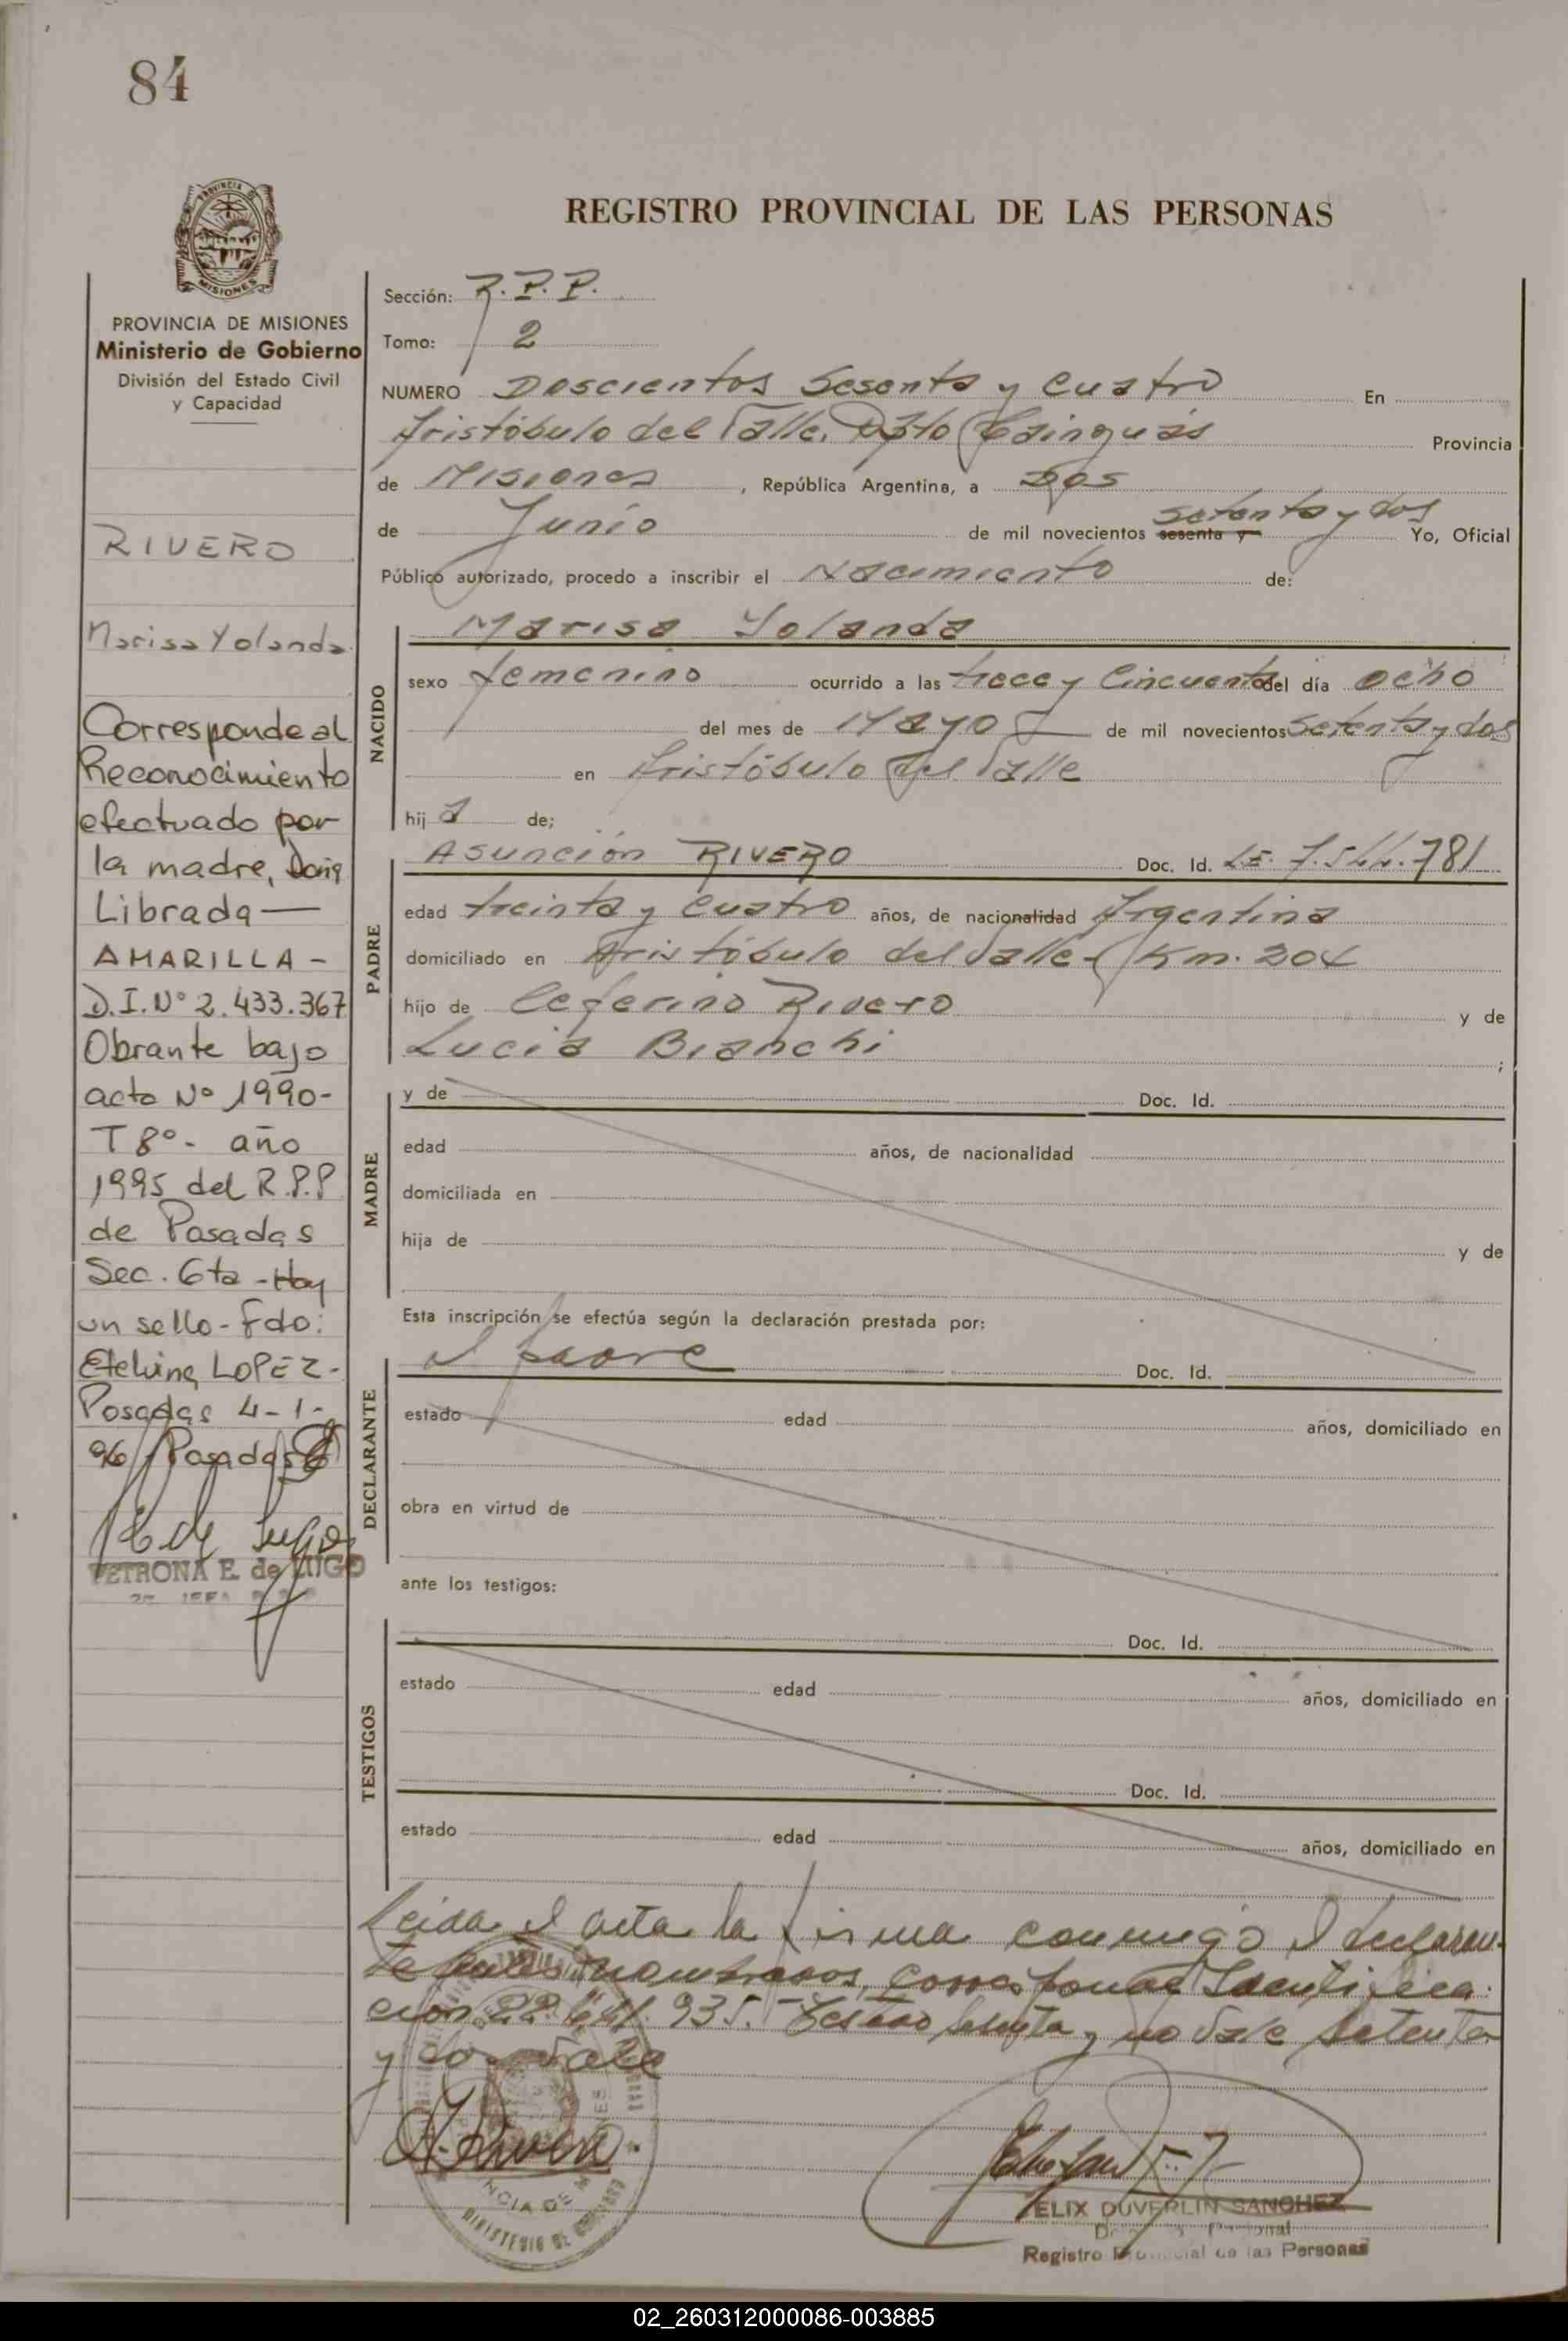 84
REGISTRO PROVINCIAL DE LAS PERSONAS
PROVINCIA DE MISIONES
Ministerio de Gobierno
División del Estado Civil
y Capacidad
RIVERO
Marisa Yolanda
Corresponde al
Reconocimiento
efectuado por
la madre,
Librada —
AMARILLA -
D.I. Nº 2.433.367
Obrante bajo
acta Nº 1990-
T 8º- año
1995 del R.P.P
de Posadas
Sec. 6ta - Hay
un sello - Fdo:
Etelvina LOPEZ -
Posadas 4-1-
96 Posadas
PETRONA E. de LUGO
Sección: R.P.P.
Tomo: 2
NUMERO Doscientos Sesenta y Cuatro En
Aristóbulo del Valle, Dpto Cainguás Provincia
de Misiones , República Argentina, a Dos
de Junio de mil novecientos sesenta y setenta y dos Yo, Oficial
Público autorizado, procedo a inscribir el Nacimiento de:
NACIDO
Marisa Yolanda
sexo femenino ocurrido a las trece y Cincuenta del día ocho
del mes de Mayo de mil novecientos Setenta y dos
en Aristóbulo del Valle
hij a de;
PADRE
Asunción RIVERO Doc. Id. L.E. 7.544.781
edad treinta y cuatro años, de nacionalidad Argentina
domiciliado en Aristóbulo del Valle - Km. 204
hijo de Ceferino Rivero y de
Lucia Bianchi ;
MADRE
y de Doc. Id.
edad años, de nacionalidad
domiciliada en
hija de y de
Esta inscripción se efectúa según la declaración prestada por:
DECLARANTE
el padre Doc. Id.
estado edad años, domiciliado en
obra en virtud de
ante los testigos:
TESTIGOS
Doc. Id.
estado edad años, domiciliado en
Doc. Id.
estado edad años, domiciliado en
Leida el acta la firma conmigo el declaran-
te nombrados, corresponde Identifica-
cion 935. - Testado sesenta y no vale setenta
y dos vale
FELIX DUVERLIN SANCHEZ
Registro Provincial de las Personas
02_260312000086-003885